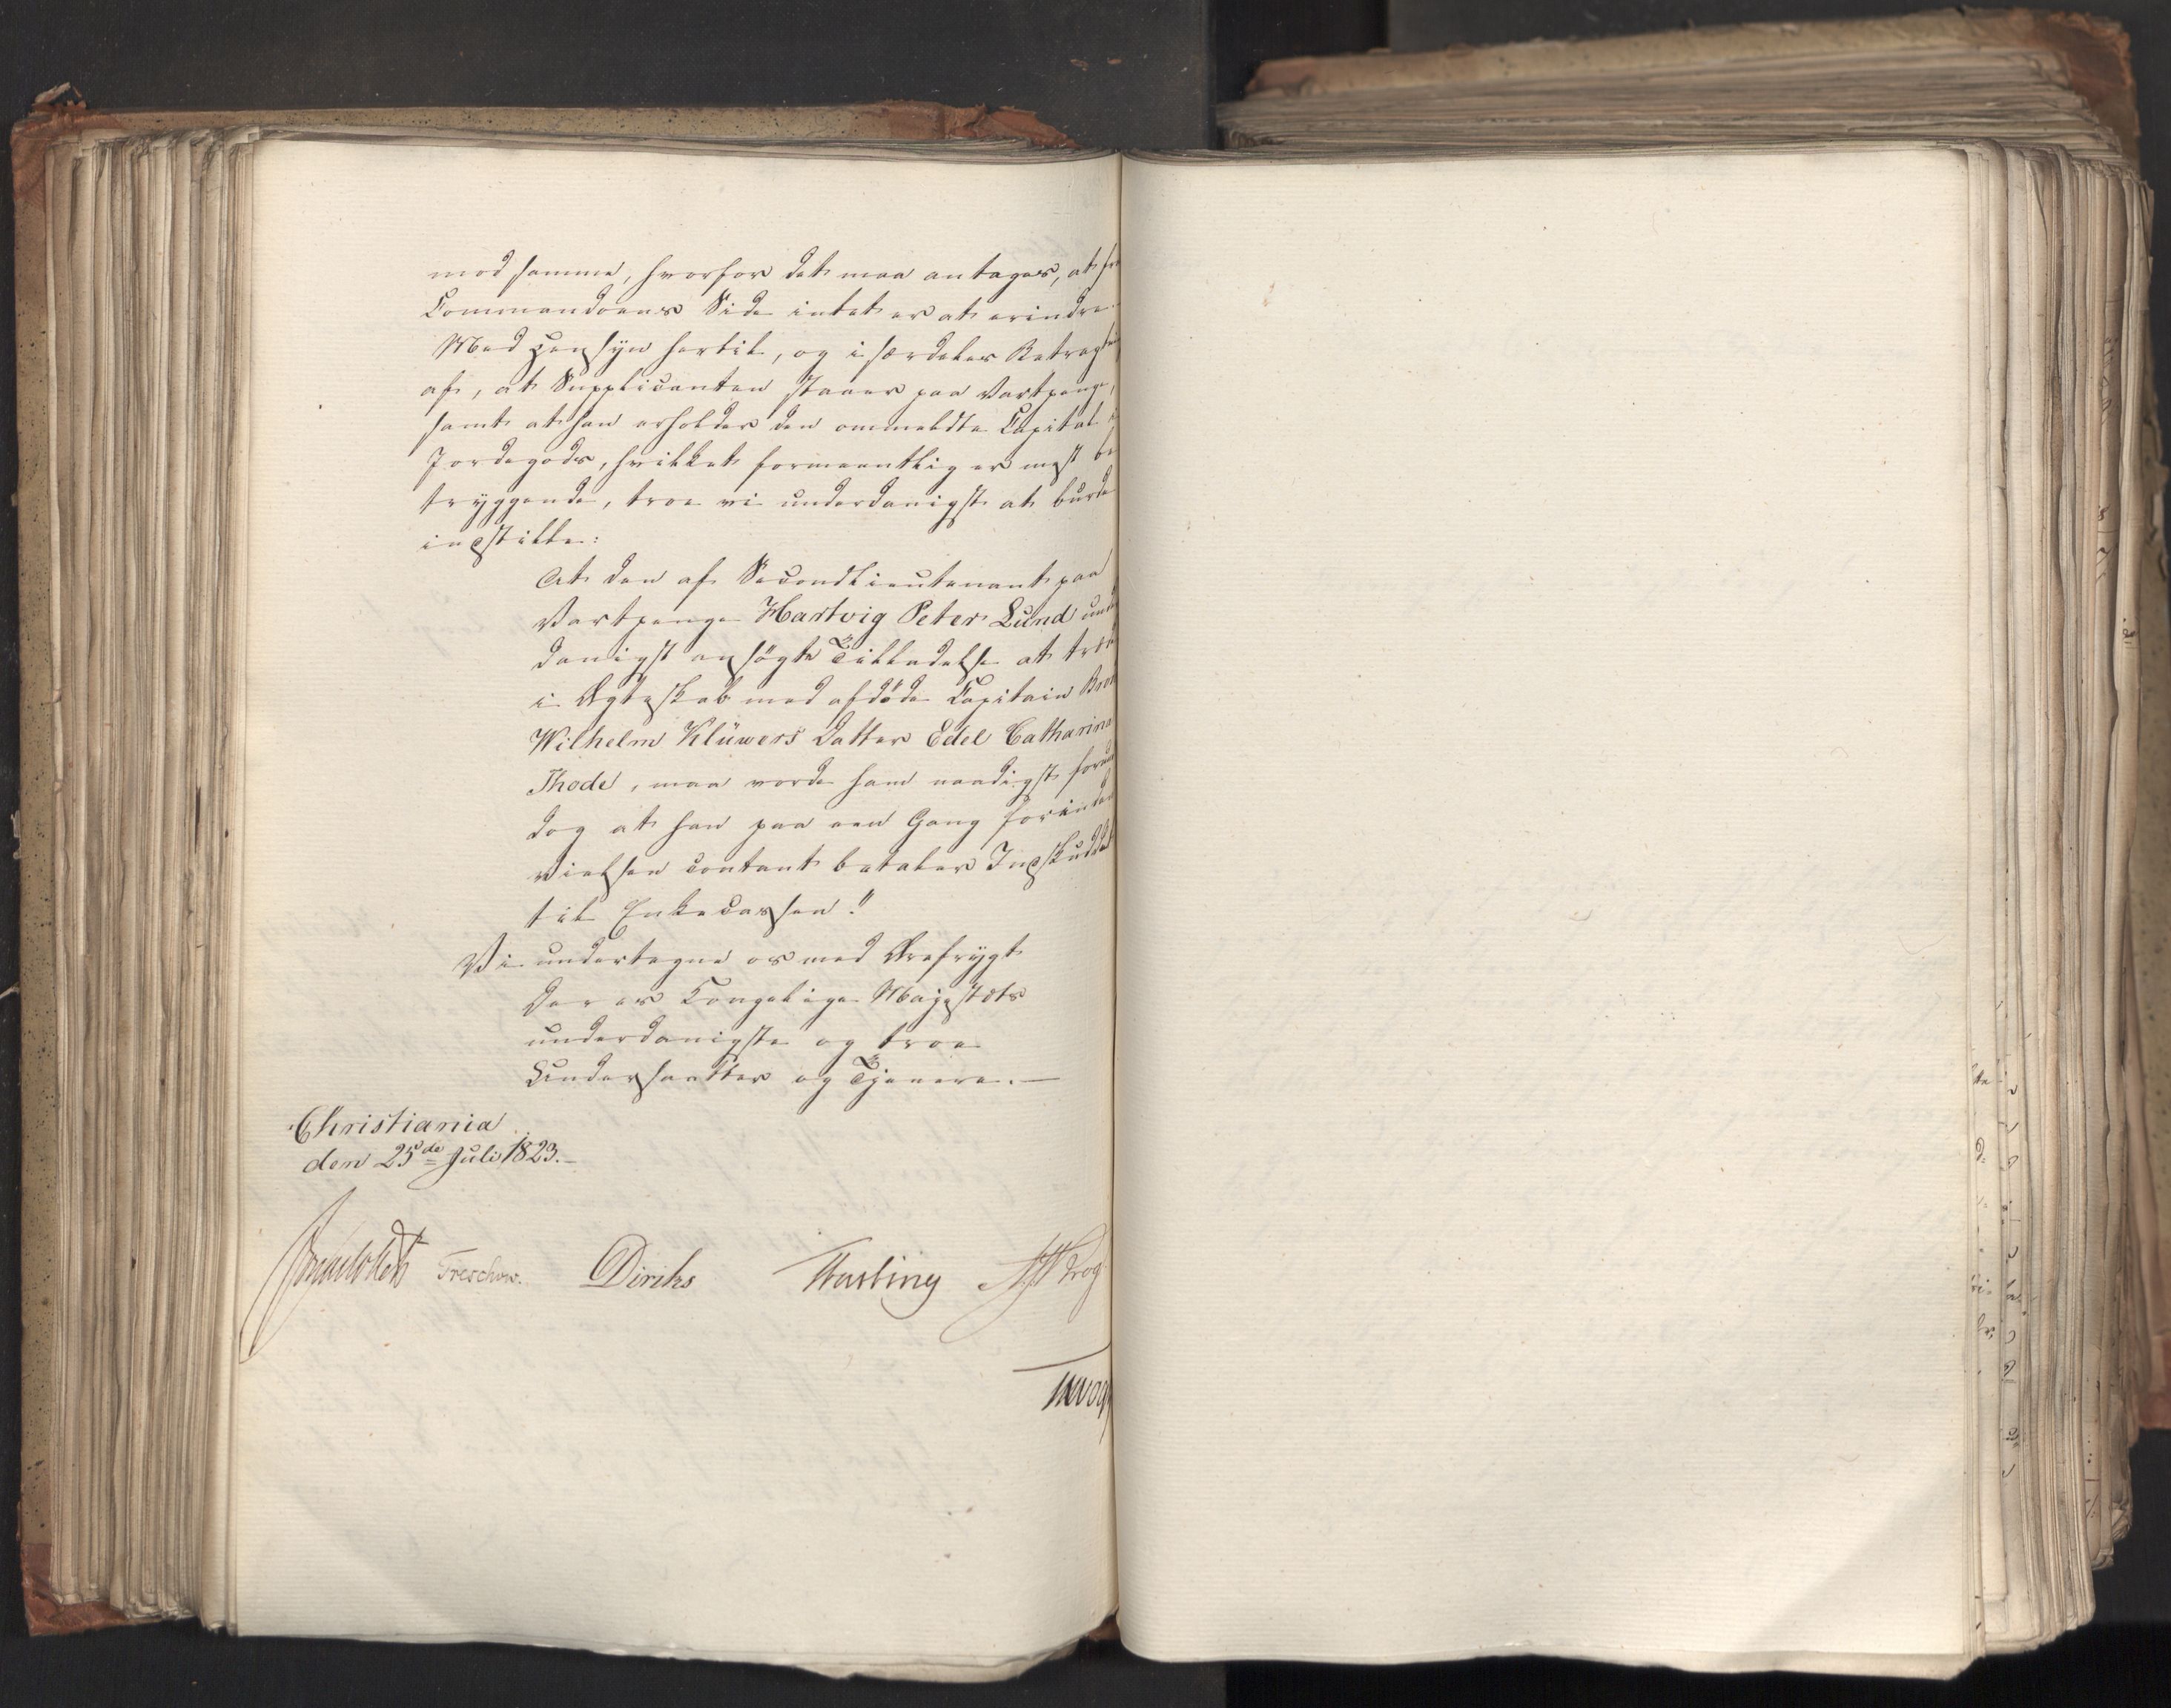 mod samme, hvorfor det maa antages, at fra
Commandoens Side intet er at erindre.
Med Hensyn hertil, og i særdeles Betragtning
af, at Supplicanten staaer paa Vartpenge,
samt at han erholder den ommeldte Capital i
Jordegods, hvilket formeentlig er mest be
tryggende, troe vi underdanigst at burde
indstille:
At den af Secondlieutenant paa
Vartpenge Hartvig Peter Lund under
danigst ansøgte Tilladelse at træde
i Ægteskab med afdøde Capitain
Wilhelm Klüwers Datter Edel Catharina
Thode, maa vorde ham naadigst forundt
dog at han paa een Gang forinden
Vielsen contant betaler Indskuddet
til Enkecassen."
Vi undertegne os med Ærefrygt
Deres Kongelige Majestæts
underdanigste og troe
Undersaatter og Tjenere.—
Christiania
den 25de Juli 1823.—
Treschow. Diriks Hasting